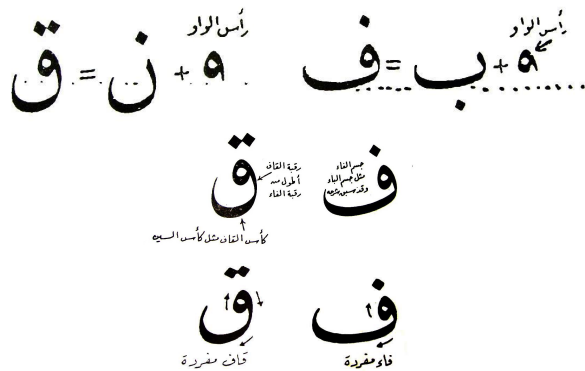 رأس الواو
و + ب = ف
رأس الواو
و + ن = ق
جسم الفاء
مثل جسم الباء
وقد سبق شرحه
ف
رقبة القاف
أطول من
رقبة الفاء
ق
كأس القاف مثل كأس السين
ف
فاء مفردة
ق
قاف مفردة